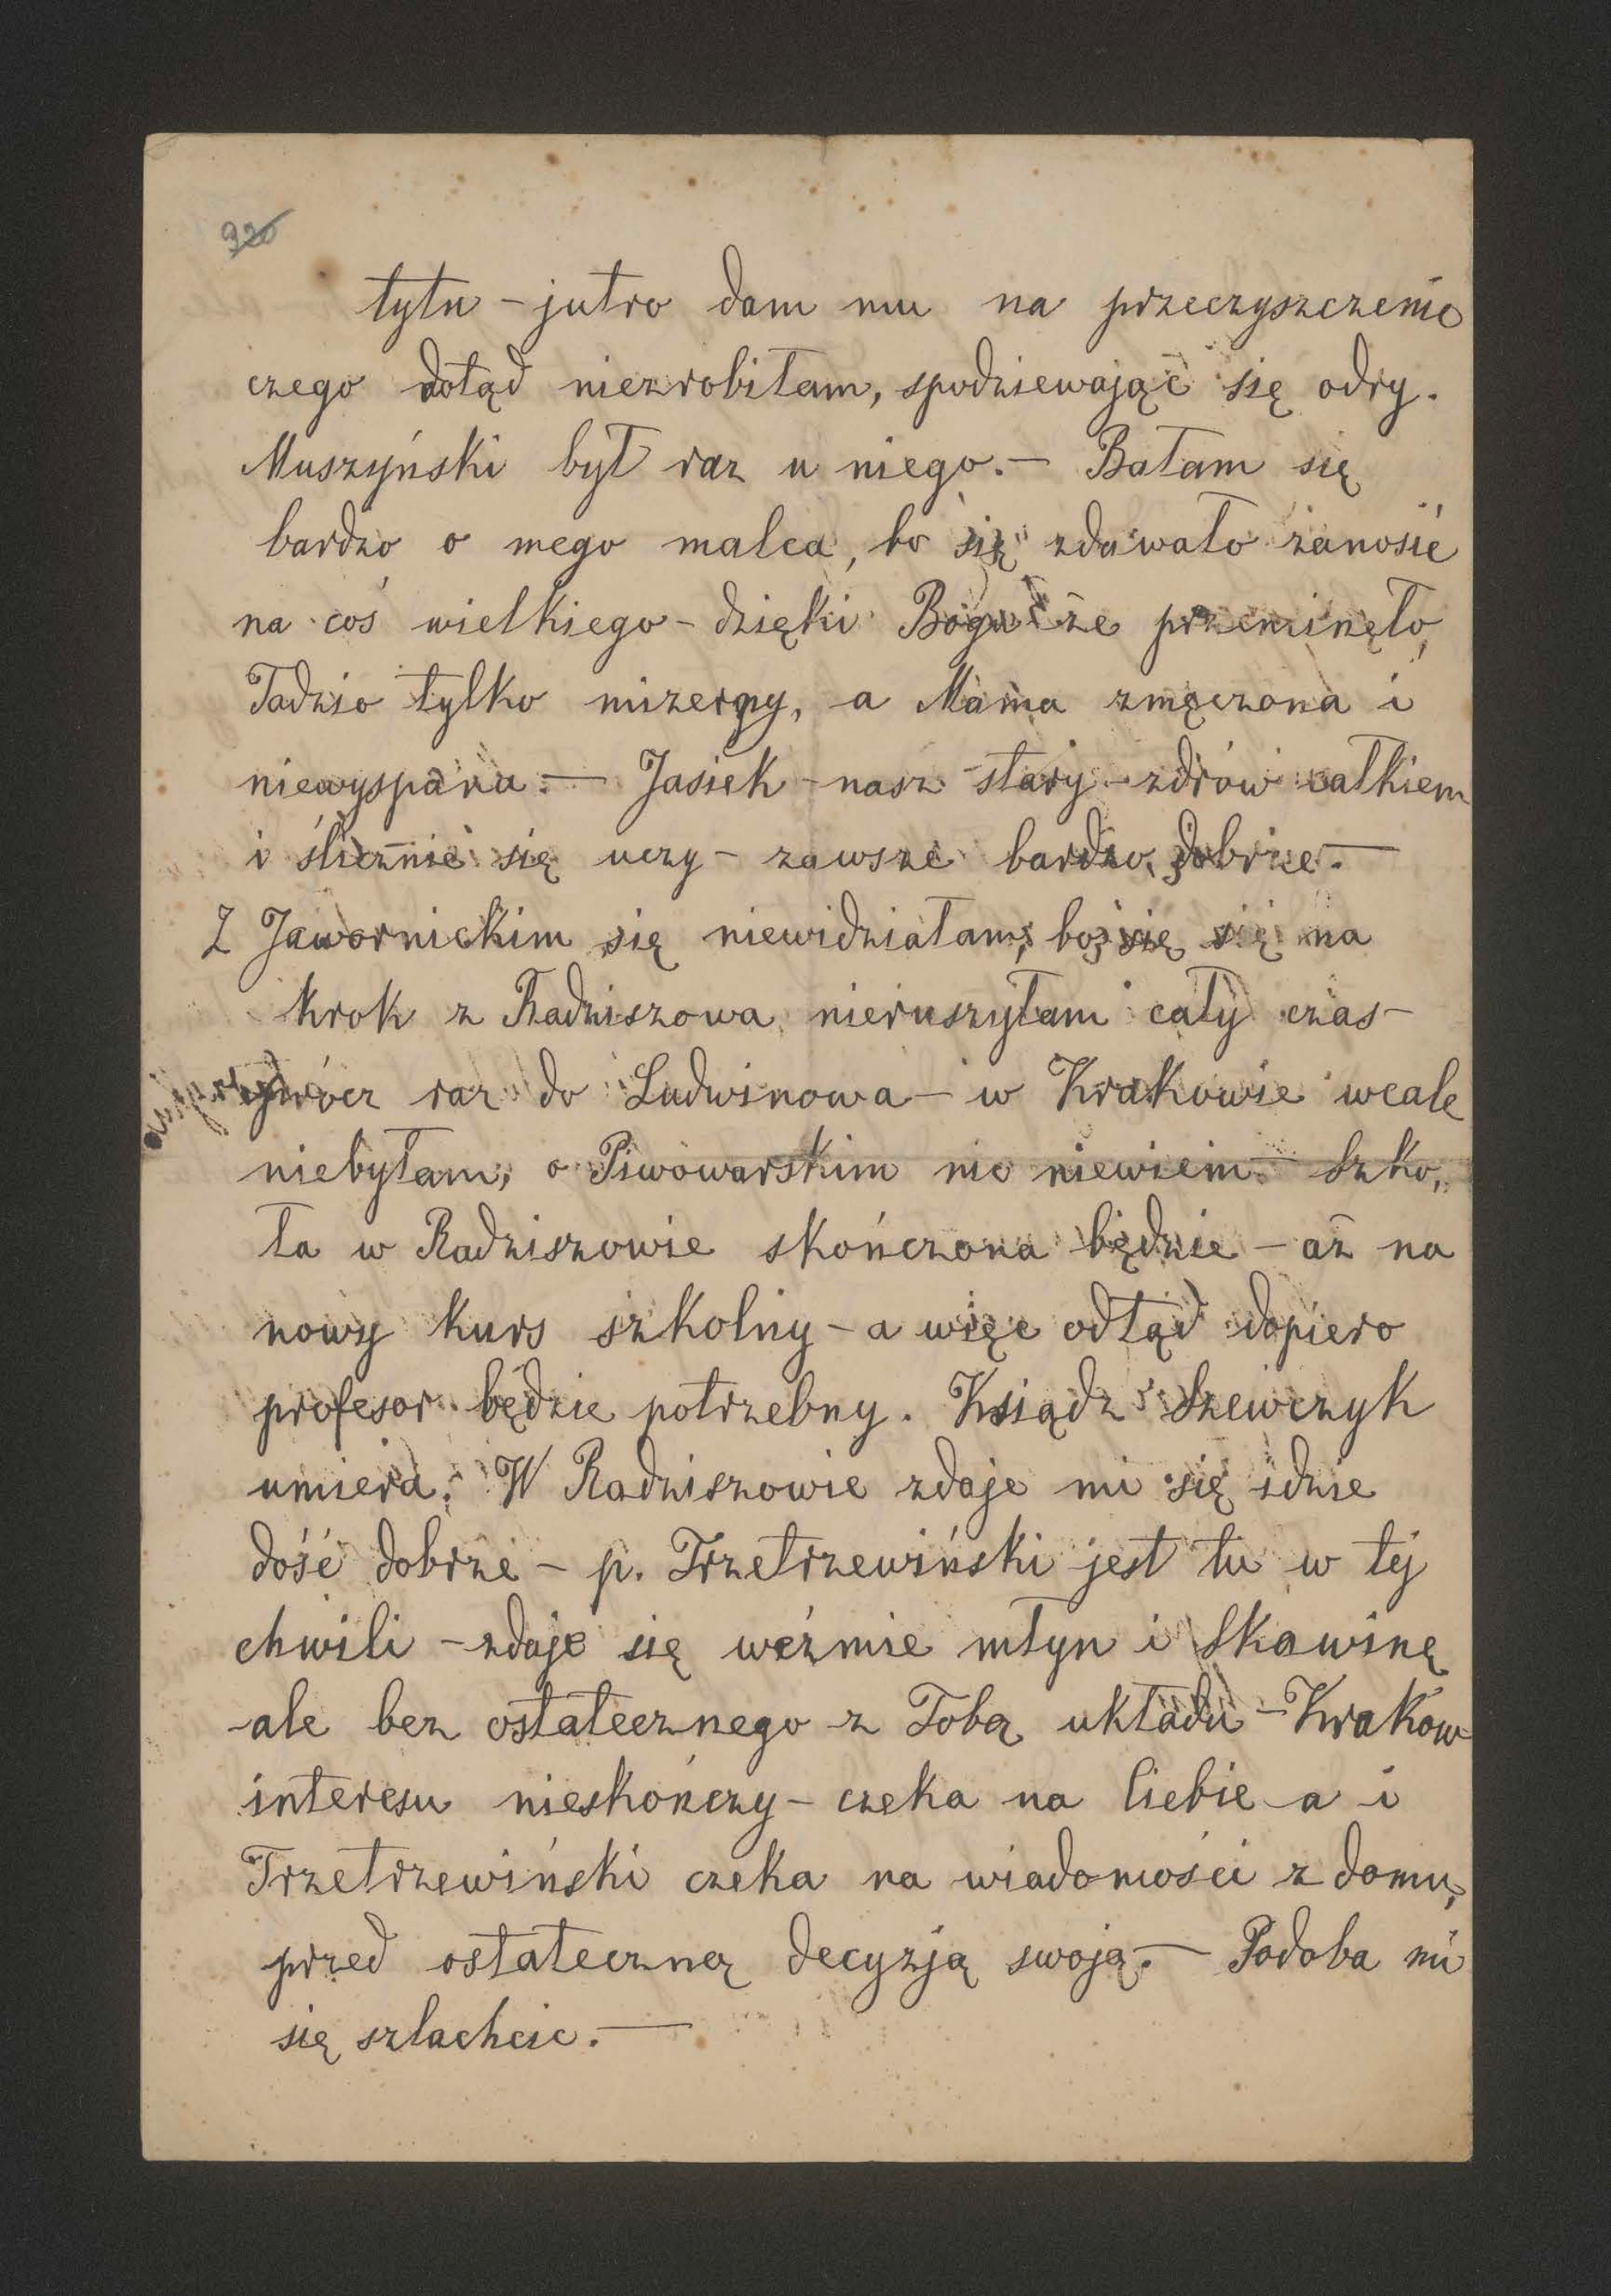 920
tytu – jutro dam mu na przeczyszczenie
czego dotąd niezrobiłam, spodziewając się odry.
Muszyński był raz u niego. – Bałam się
bardzo o mego malca, bo się zdawało zanosić
na coś wielkiego – dzięki Bogu że przeminęło,
Tadzio tylko mizerny, a Mama zmęczona i
niewyspana. – Jasiek – nasz stary – zdrów całkiem
i ślicznie się uczy – zawsze bardzo dobrze. –
Z Jawornickim się niewidziałam, bo się na
krok z Radziszowa nieruszyłam cały czas –
oprócz raz do Ludwinowa – w Krakowie wcale
niebyłam, o Piwowarskim nic niewiem – Szko„
ła w Radziszowie skończona będzie – aż na
nowy kurs szkolny – a więc odtąd dopiero
profesor będzie potrzebny. Ksiądz Szewczyk
umiera. W Radziszowie zdaje mi się idzie
dość dobrze – p. Trzetrzewiński jest tu w tej
chwili – zdaje się weźmie młyn i Skawinę
ale bez ostatecznego z Tobą układu – Kraków
interesu nieskończy – czeka na Ciebie a i
Trzetrzewiński czeka na wiadomości z domu,
przed ostateczną decyzją swoją. – Podoba mi
się szlachcic. –